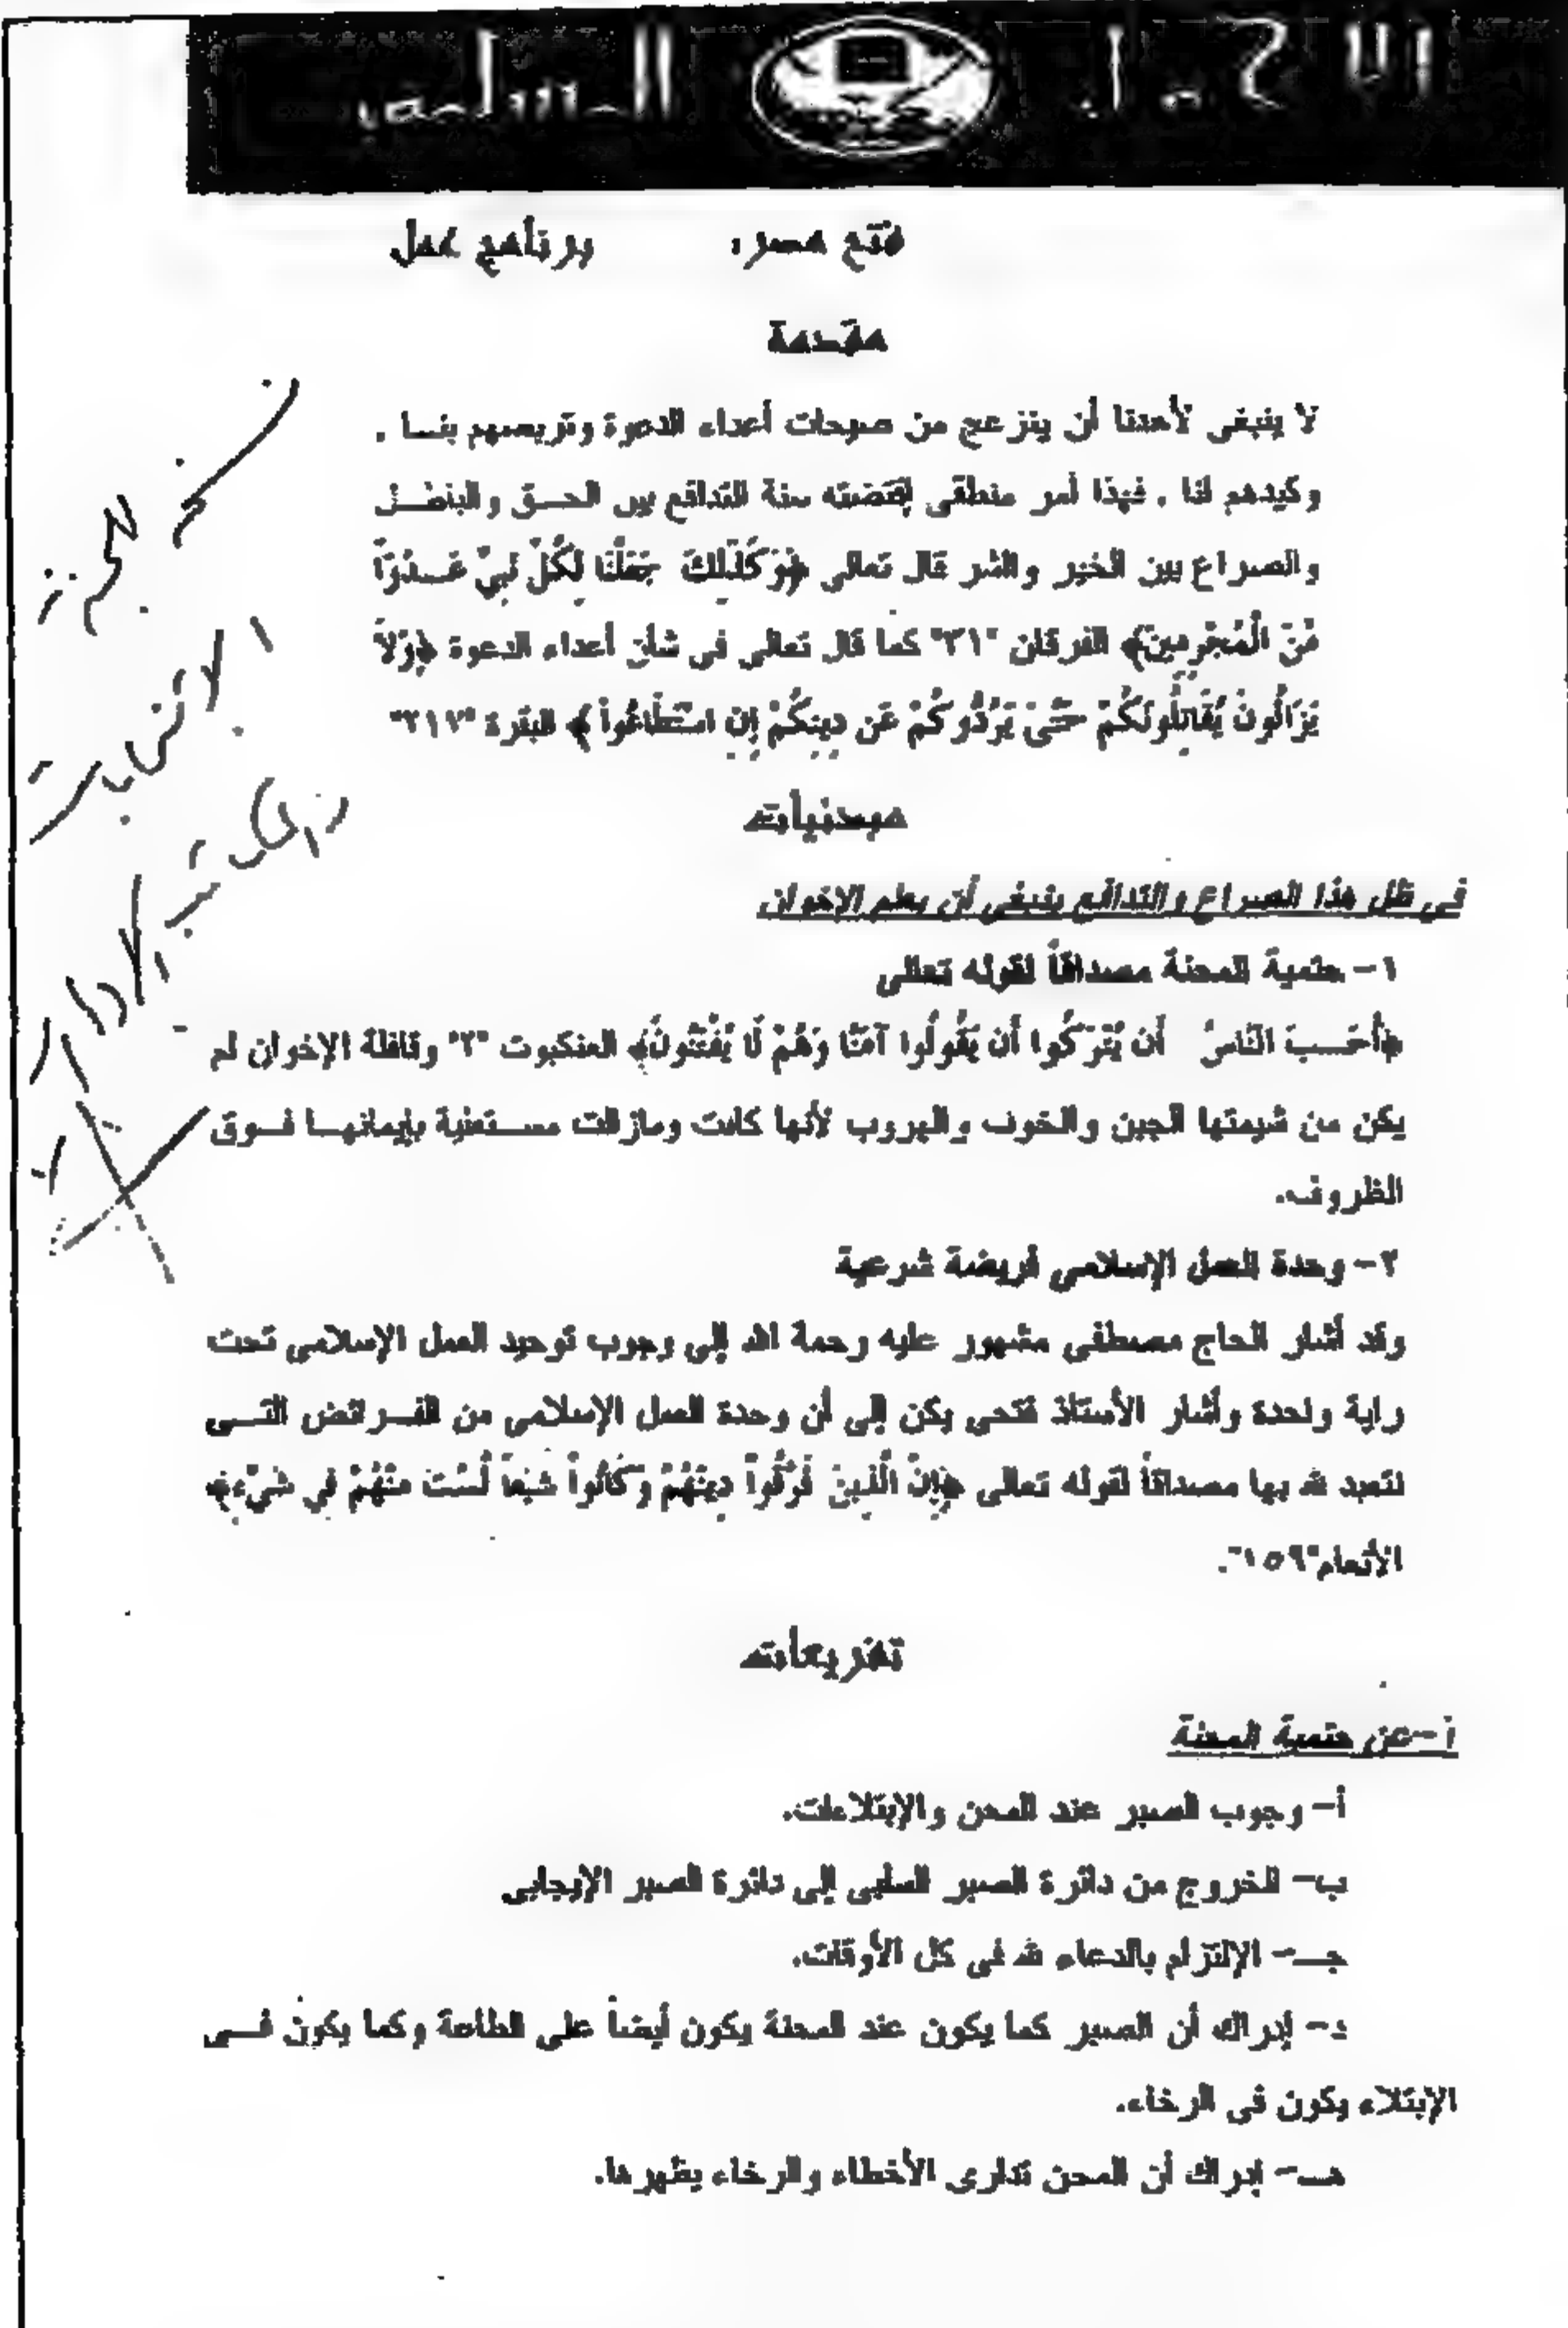 فتح مصر: برنامج عمل
مقدمة
لا ينبغى لأحدنا أن ينزعج من صيحات أعداء الدعوة وتربصهم بنا .
وكيدهم لنا . فهذا أمر منطقى إقتضته سنة التدافع بين الحـــق والباطــل
والصراع بين الخير والشر قال تعالى ﴿وَكَذَلِكَ جَعَلْنَا لِكُلِّ نَبِيٍّ عَــدُوّاً
مِّنَ الْمُجْرِمِينَ﴾ الفرقان "٣١" كما قال تعالى فى شأن أعداء الدعوة ﴿وَلاَ
يَزَالُونَ يُقَاتِلُونَكُمْ حَتَّىَ يَرُدُّوكُمْ عَن دِينِكُمْ إِنِ اسْتَطَاعُواْ ﴾ البقرة "٢١٧"
في ظل هذا الصراع والتدافع ينبغي أن يعلم الإخوان
١- حتمية المحنة مصداقاً لقوله تعالى
﴿أَحَــسِبَ النَّاسُ أَن يُتْرَكُوا أَن يَقُولُوا آمَنَّا وَهُمْ لَا يُفْتَنُونَ﴾ العنكبوت "٢" وقافلة الإخوان لم
يكن من شيمتها الجبن والخوف والهروب لأنها كانت ومازالت مســتعلية بإيمانهــا فــوق
الظروف.
٢- وحدة العمل الإسلامي فريضة شرعية
وقد أشار الحاج مصطفى مشهور عليه رحمة الله إلى وجوب توحيد العمل الإسلامى تحت
راية واحدة وأشار الأستاذ فتحى يكن إلى أن وحدة العمل الإسلامى من الفــرائض التــى
نتعبد لله بها مصداقاً لقوله تعالى ﴿إِنَّ الَّذِينَ فَرَّقُواْ دِينَهُمْ وَكَانُواْ شِيَعاً لَّسْتَ مِنْهُمْ فِي شَيْءٍ﴾
الأنعام"١٥٩".
تفريعات
أ-عن حتمية المحنة
أ- وجوب الصبر عند المحن والإبتلاءات.
ب- الخروج من دائرة الصبر السلبى إلى دائرة الصبر الإيجابى
جــ- الإلتزام بالدعاء لله فى كل الأوقات.
د- إدراك أن الصبر كما يكون عند المحنة يكون أيضاً على الطاعة وكما يكون فـــى
الإبتلاء يكون فى الرخاء.
هــ- إدراك أن المحن تدارى الأخطاء والرخاء يظهرها.